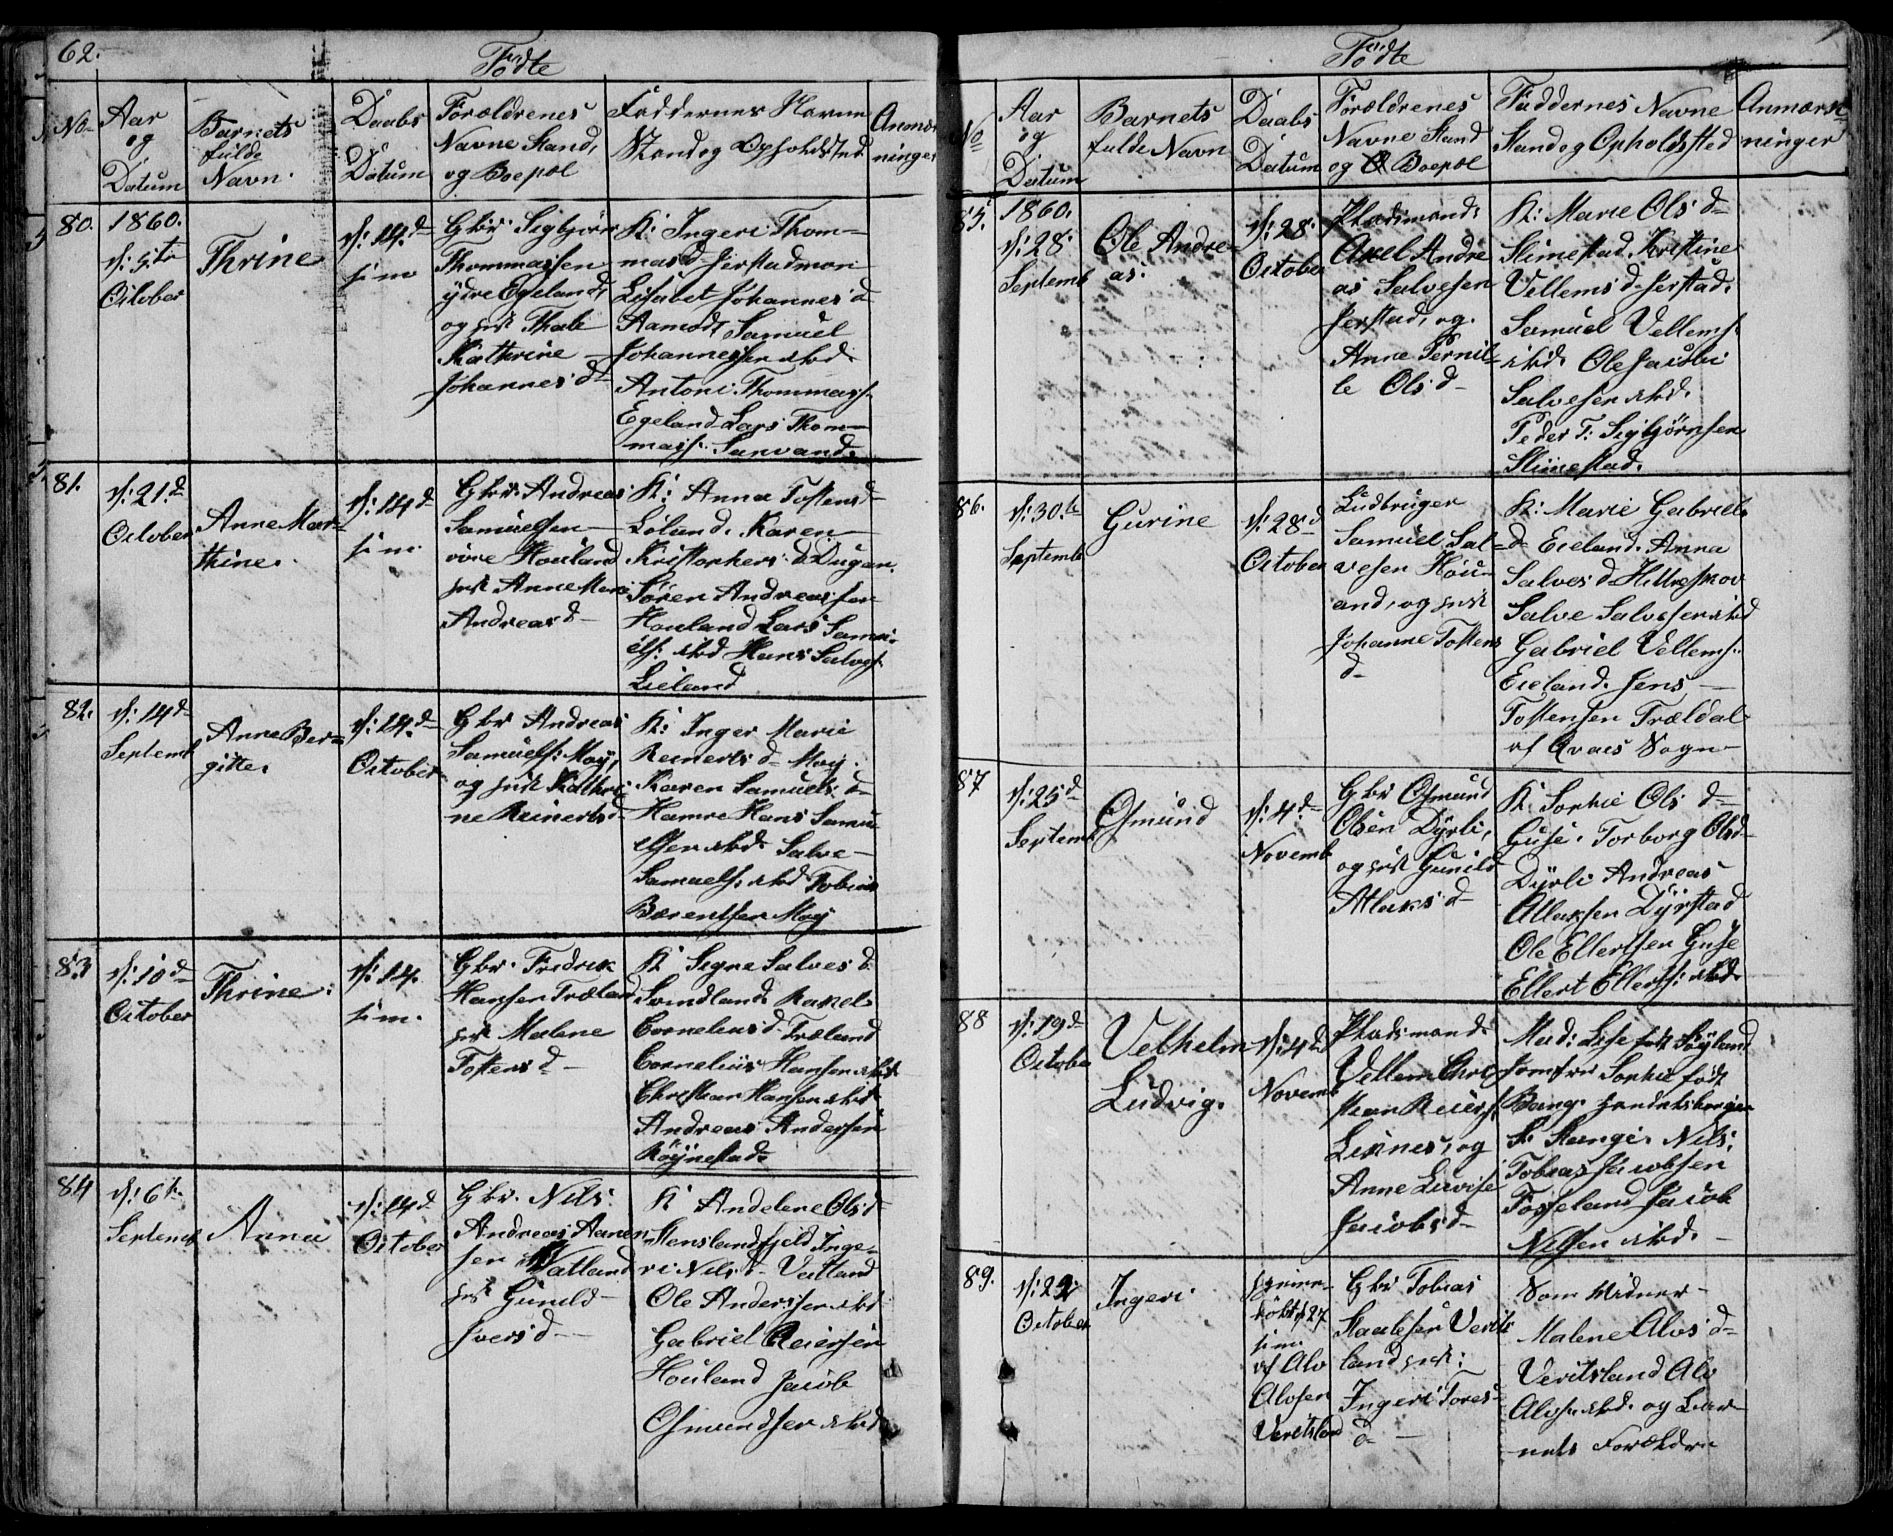 62.
Fødte
No
Aar
og
Datum
Barnets
fulde
Navn.
Daabs
Datum
Forældrenes
Navne Stand,
og Boepæl
Faddernes Navne
Stand og Opholdsted
Anmærk
ninger
80.
1860.
d: 5te
October
Thrine
d: 14d
s: m
Gbr: Sigbjørn
Thommassen
ydre Egeland,
og hst Thale
Kathrine
Johannes d
K: Ingeri Thom-
mas d Jerstadmon
Lisabet Johannes d
Aamodt Samuel
Johannessen sted.
Antoni Thommass.
Egeland Lars Thom-
mass.
81.
d: 21d
October
Anne Mar-
thine.
d: 14d
s: m.
Gbr: Andreas
Samuelsen
Houland
hst Anne Marie
Andreas d
K: Anna Tostens d
Kristophers d Dugan.
Søren Andreassen
Houland Lars Samu-
els: sted Hans Salves:
Lieland
82.
d: 14d
Septemb
Anne Ber-
gitte.
d: 14d
October
Gbr Andreas
Samuels: Moÿ,
og hst Kathri-
ne Reinerts d
K: Inger Marie
Reinerts d Moÿ.
Karen Samuels d
Hamre Hans Samu-
elsen sted. Salve
Samuels. sted Tobias
Bærentsen Moÿ
83
d: 10d
October
Thrine.
d: 14.
s: m.
Gbr. Fredrik
Hansen Træland
hst Malene
Tostens d
K: Segne Salves d
Svindland. Rakel
Cornelius d. Træland
Cornelius Hansen sted
Christian Hansen sted
Andreas Andersen
Røÿnestad.
84
d: 6t.
Septemb
Anna
d: 14d
October
Gbr. Nils
Andreas Aanen-
sen Vatland
hst Gunild
Ivers d
K Andelene Ols d
Stenslandsfjeld Inge-
ri Nils d Vatland
Ole Anderssen sted
Gabriel Reiersen
Houland Jacob
Osmundsen sted
Fødte
No
Aar
og
Datum
Barnets
fulde Navn
Daabs
Datum
Forældrenes
Navne Stand
og Boepæl
Faddernes Navne
Stand og Opholdssted
Anmærk-
ninger
85.
1860.
d: 28.
Septemb
Ole Andre-
as.
d: 28.
October
Pladsmand:
Axel Andre
as Salvesen
Jerstad, og.
Anne Pernil-
le Ols d
K: Marie Ols d
Slimestad. Kristine
Vellems d Jerstad.
Samuel Vellems.
sted. Ole Jacobi
Salvesen sted.
Peder T: Sigbjørnsen
Slimestad.
86.
d: 30.te
Septemb
Gurine
d: 28d
October
Ludbruger
Samuel Sal-
vesen Houl-
and, og hst
Johanne Tostens
d
K: Marie Gabriels
d Eieland. Anna
Salves d
Salve Salvesen sted
Gabriel Vellems:
Eieland. Jens
Tostensen Trældal
af Qvaes Sogn
87
d: 25d
Septemb
Osmund
d: 4.d
Novemb
Gbr Osmund
Olsen Dÿrli,
og hst Gunild
Atlaks d
K. Sophie Ols d
Guse. Torborg Ols d
Dÿrli Andreas
Atlaksen Dÿrstad
Ole Ellertsen Guse
Ellert Ellerts: sted.
88
d: 19d
October
Velhelm
Ludvig.
d: 4d
Novemb
Pladsmand.
Vellem Chri-
stian Reiers:
Leknes, og
Anne Lovise
Jacobs d
Mad: Lise født Føÿland
Jomfru Sophie født
Bang. Handelsborger
S. Stange. Nils
Tobias Jacobsen
Fosseland Jacob
Nilsen sted.
89.
d: 22
October
Ingeri
Hjemme-
døbt d 27
s: m:
af Alv
Alvsen
Veritsland
Gbr Tobias
Staalesen Verits
land hst:
Ingeri Tores
d
Som Vidner
Malene Alvs d
Veritsland Alv
Alvsen sted. og Bar-
nets Forældre